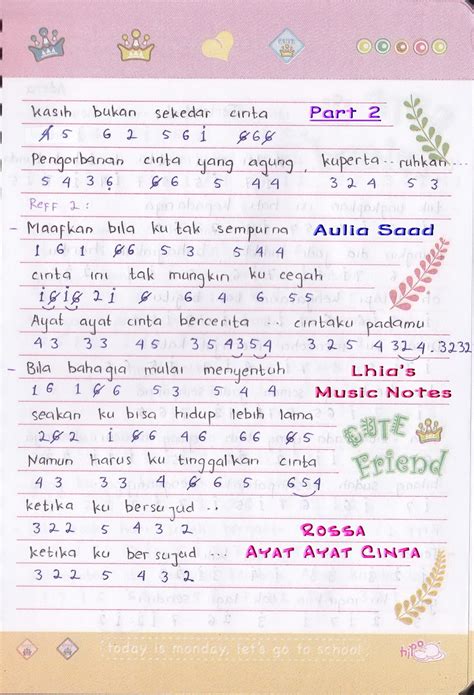 kasih bukan sekedar cinta Part 2
4 5 6 2 5 6 i 6 6 6
Pengorbanan cinta yang agung, kuperta .. ruhkan ...
5 4 3 6 6 6 5 4 4 3 2 4 5 3
Reff 2 :
- Maafkan bila ku tak sempurna Aulia Saad
1 6 1 6 6 5 3 5 4 4
cinta ini tak mungkin ku cegah
i 6 i 6 2 i 6 6 4 6 6 5
Ayat ayat cinta bercerita ... cintaku padamu
4 3 3 3 4 5 3 5 4 3 5 4 3 2 5 4 3 2 4 . 3 2 3 2
- Bila bahagia mulai menyentuh Lhia's
1 6 1 6 6 6 5 3 5 4 4 Music Notes
seakan ku bisa hidup lebih lama
2 6 2 1 6 6 4 6 6 6 5 CUTE
Namun harus ku tinggalkan cinta Friend
4 3 3 3 4 6 6 5 6 5 4
ketika ku bersujud ..
3 2 2 5 4 3 2 Rossa
ketika ku bersujud ... Ayat Ayat Cinta
3 2 2 5 4 3 2
today is monday, let's go to school! hipo